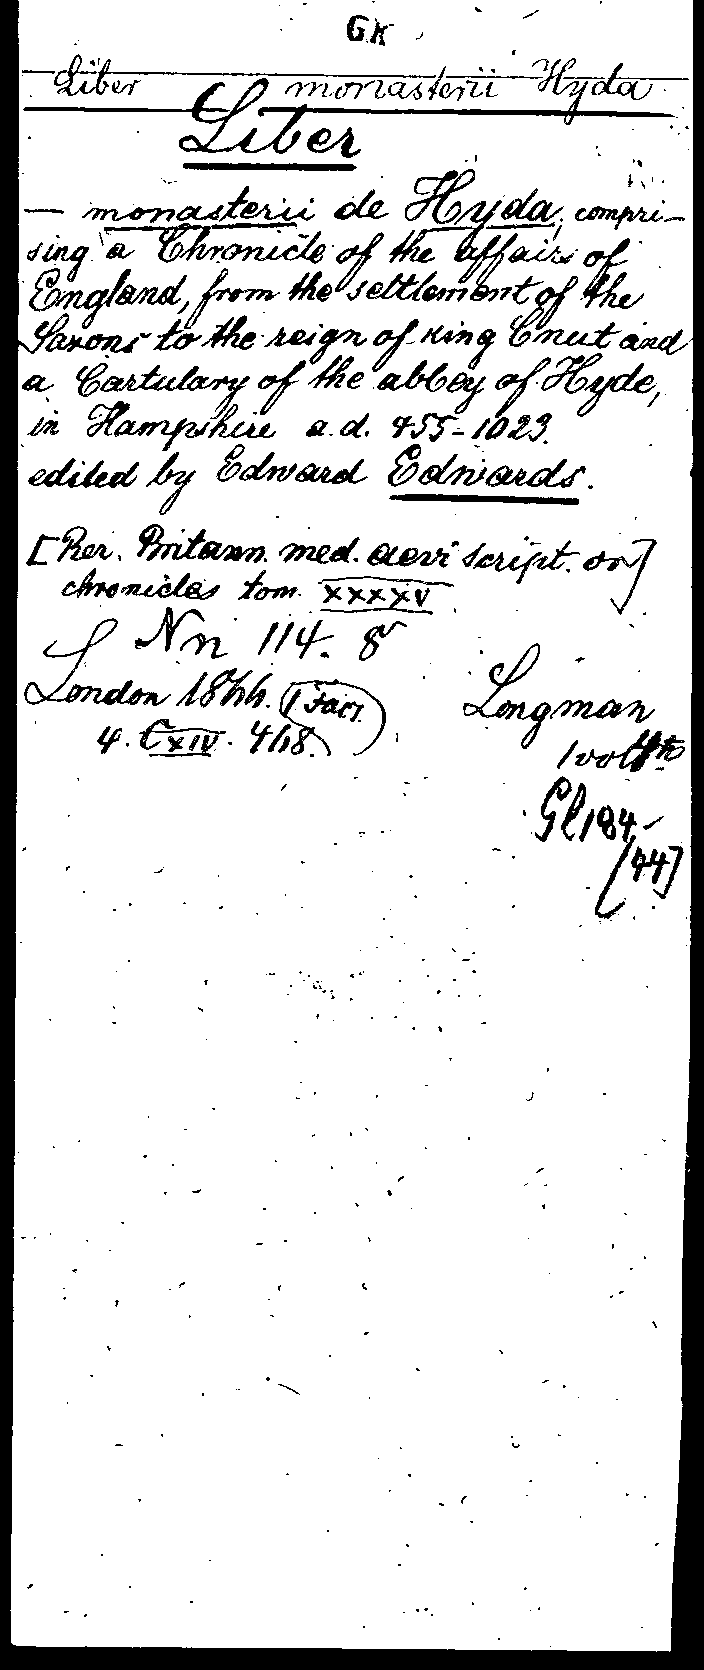 GK
Liber monasterii Hyda
Liber
— monasterii de Hyda, compri-
sing a Chronicle of the affairs of
England, from the settlement of the
Saxons to the reign of king Cnut and
a Cartulary of the abbey of Hyde,
in Hampshire a.d. 455-1023.
edited by Edward Edwards.
[Rer. Britann. med. aevi script. or]
chronicles tom. XXXXV
Nn 114. 8
London 1866. Longman
4. CXIV. 468.
Gl 184-
[44]